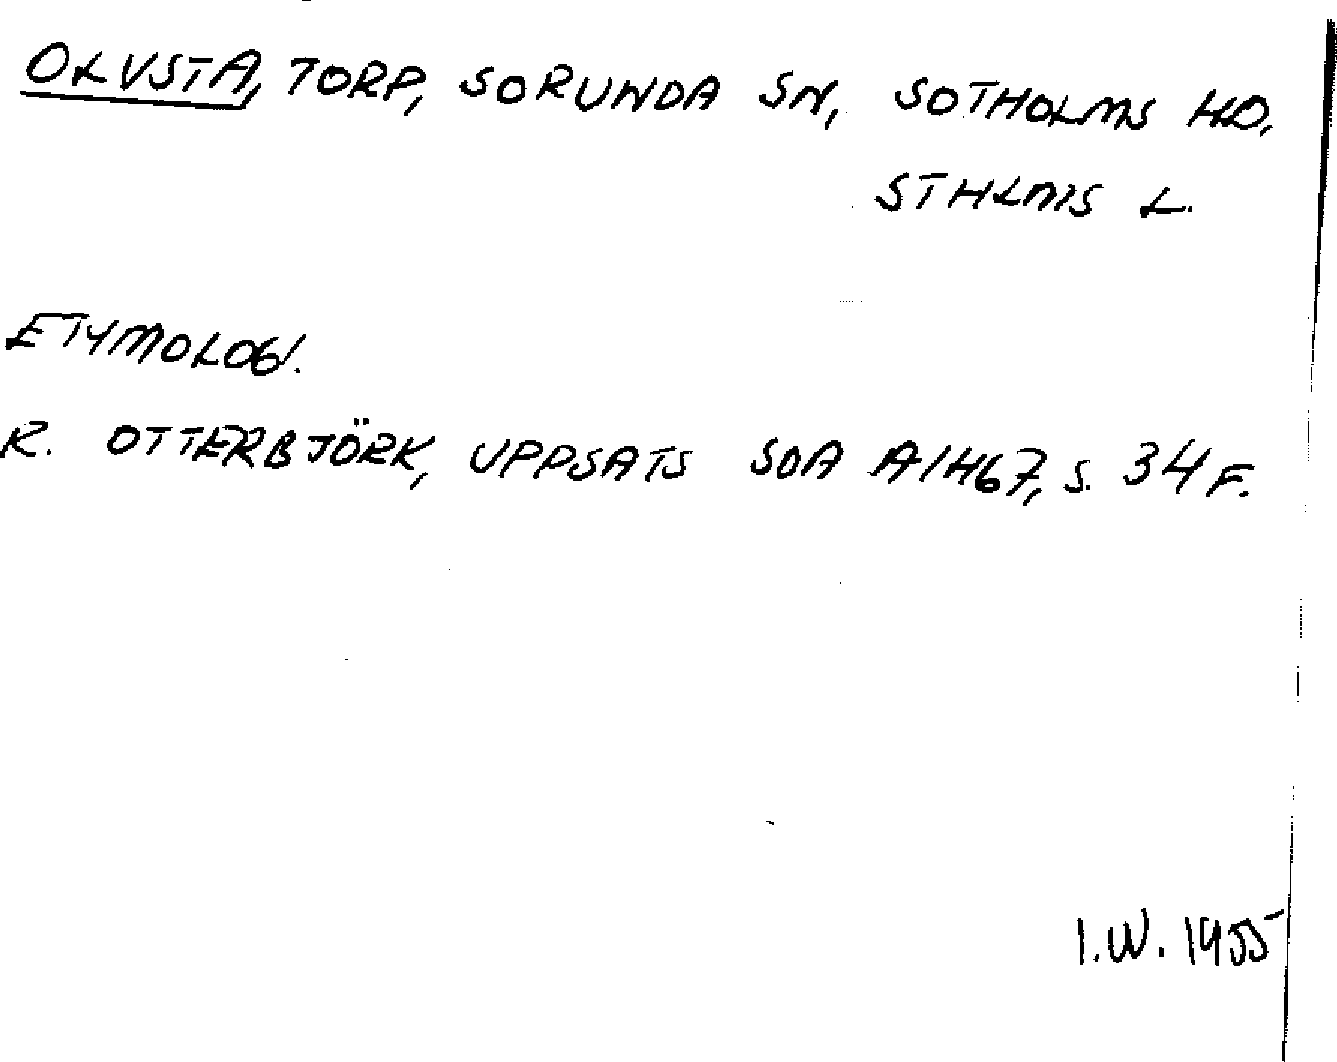 OLVSTA, TORP, SORUNDA SN, SOTHOLMS HD,
STHLMS L.
ETYMOLOGI.
R. OTTERBJÖRK, UPPSATS SOA A1467, S. 34 F.
I.W. 1955